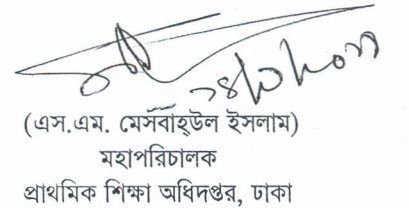 (এস.এম. মেসবাহ্উল ইসলাম)
মহাপরিচালক
প্রাথমিক শিক্ষা অধিদপ্তর, ঢাকা